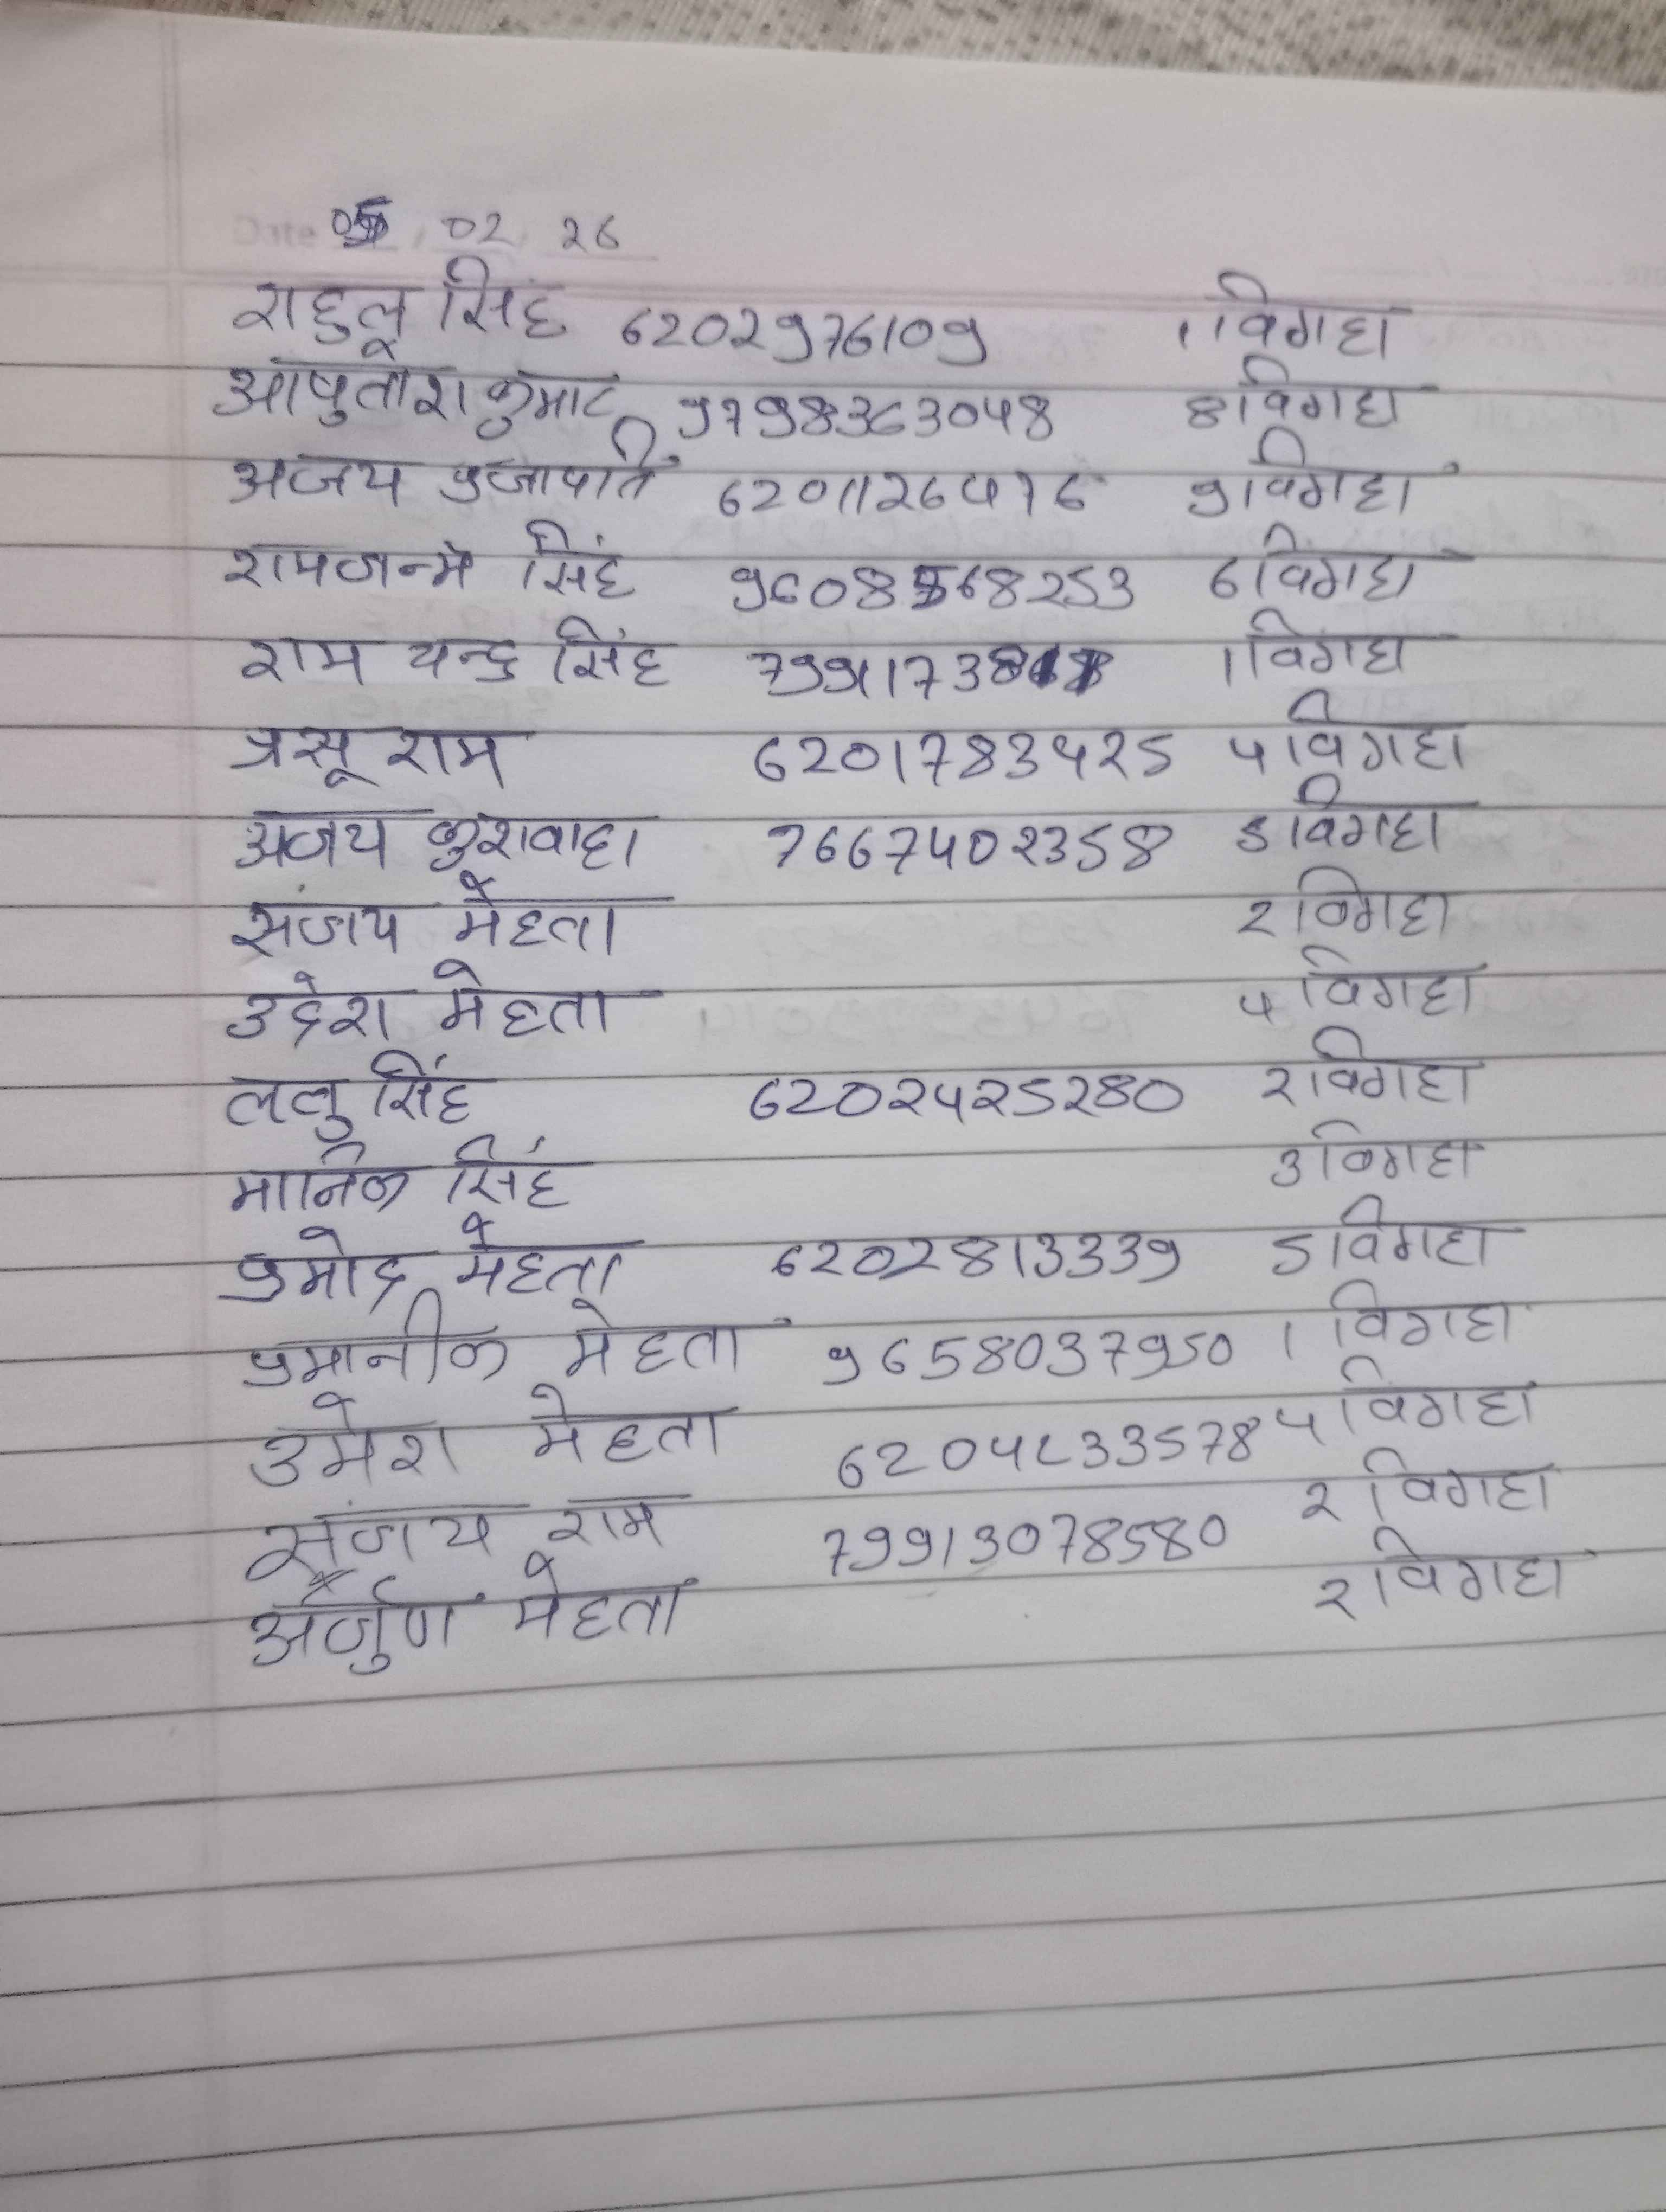 Date 05 02 26
राहुल सिंह 6202976109 1 विगहा
आषुतोश कुमार 9798363048 8 विगहा
अजय प्रजापति 6201126476 9 विगहा
रामजन्म सिंह 9608568253 6 विगहा
राम चन्द्र सिंह 7991173818 1 विगहा
त्रसू राम 6201783425 4 विगहा
अजय कुशवाहा 7667402358 5 विगहा
संजय मेहता 2 विगहा
उदेश मेहता 4 विगहा
ललु सिंह 6202425280 2 विगहा
मानिक सिंह 3 विगहा
प्रमोद मेहता 6202813339 5 विगहा
प्रमानीक मेहता 9658037950 1 विगहा
उमेश मेहता 6204833578 4 विगहा
संजय राम 79913078580 2 विगहा
अर्जुण मेहता 2 विगहा